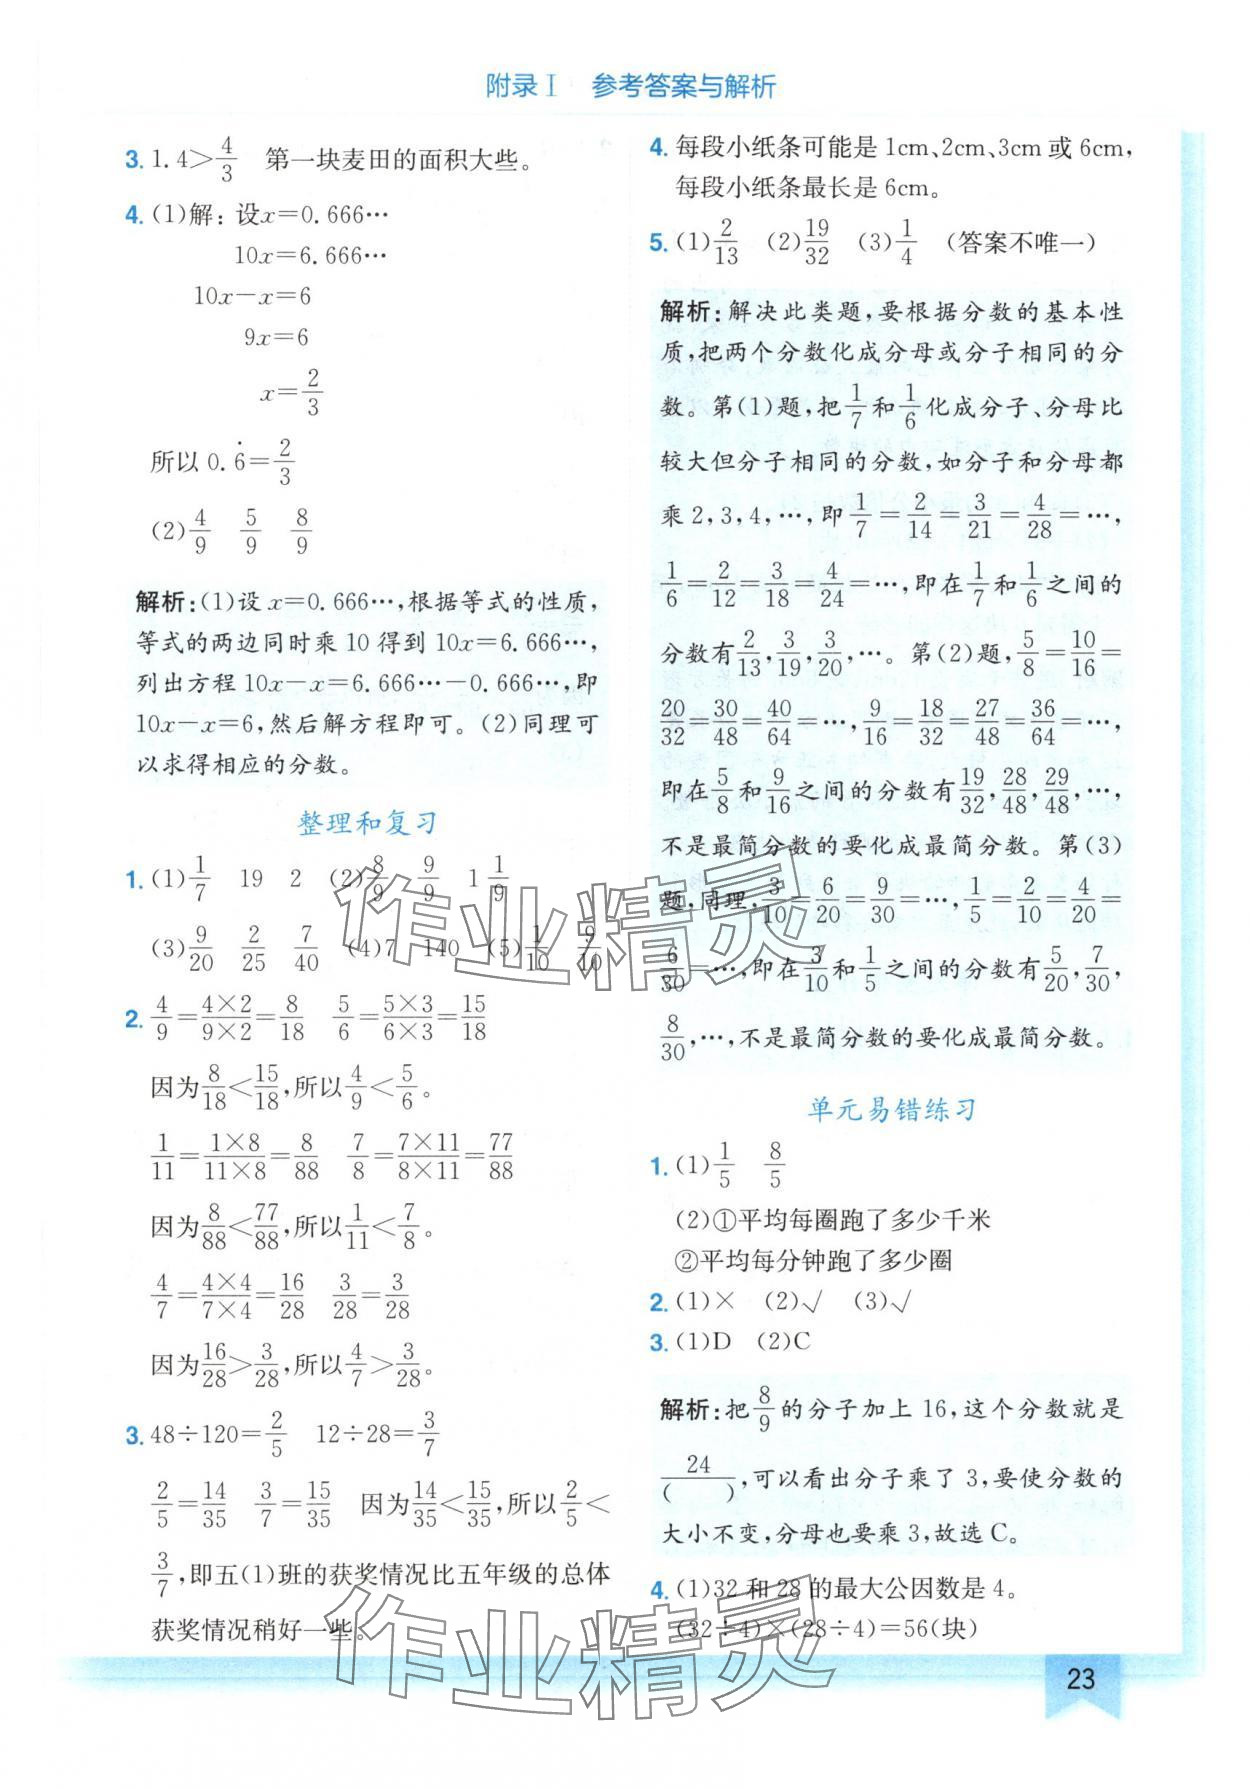 附录Ⅰ 参考答案与解析
3. 1.4>4/3 第一块麦田的面积大些。
4. (1)解:设x=0.666…
10x=6.666…
10x-x=6
9x=6
x=2/3
所以0.6̇=2/3
(2)4/9 5/9 8/9
解析:(1)设x=0.666…,根据等式的性质,
等式的两边同时乘10得到10x=6.666…,
列出方程10x-x=6.666…-0.666…,即
10x-x=6,然后解方程即可。(2)同理可
以求得相应的分数。
整理和复习
1. (1)1/7 19 2 (2)8/9 9/9 1 1/9
(3)9/20 2/25 7/40 (4)7 140 (5)1/10 9/10
2. 4/9=4×2/9×2=8/18 5/6=5×3/6×3=15/18
因为8/18<15/18,所以4/9<5/6。
1/11=1×8/11×8=8/88 7/8=7×11/8×11=77/88
因为8/88<77/88,所以1/11<7/8。
4/7=4×4/7×4=16/28 3/28=3/28
因为16/28>3/28,所以4/7>3/28。
3. 48÷120=2/5 12÷28=3/7
2/5=14/35 3/7=15/35 因为14/35<15/35,所以2/5<
3/7,即五(1)班的获奖情况比五年级的总体
获奖情况稍好一些。
4. 每段小纸条可能是1cm、2cm、3cm或6cm,
每段小纸条最长是6cm。
5. (1)2/13 (2)19/32 (3)1/4 (答案不唯一)
解析:解决此类题,要根据分数的基本性
质,把两个分数化成分母或分子相同的分
数。第(1)题,把1/7和1/6化成分子、分母比
较大但分子相同的分数,如分子和分母都
乘2,3,4,…,即1/7=2/14=3/21=4/28=…,
1/6=2/12=3/18=4/24=…,即在1/7和1/6之间的
分数有2/13,3/19,3/20,…。第(2)题,5/8=10/16=
20/32=30/48=40/64=…,9/16=18/32=27/48=36/64=…,
即在5/8和9/16之间的分数有19/32,28/48,29/48,…,
不是最简分数的要化成最简分数。第(3)
题,同理,3/10=6/20=9/30=…,1/5=2/10=4/20=
6/30=…,即在3/10和1/5之间的分数有5/20,7/30,
8/30,…,不是最简分数的要化成最简分数。
单元易错练习
1. (1)1/5 8/5
(2)①平均每圈跑了多少千米
②平均每分钟跑了多少圈
2. (1)× (2)√ (3)√
3. (1)D (2)C
解析:把8/9的分子加上16,这个分数就是
24/( ),可以看出分子乘了3,要使分数的
大小不变,分母也要乘3,故选C。
4. (1)32和28的最大公因数是4。
(32÷4)×(28÷4)=56(块)
23
作业精灵
作业精灵